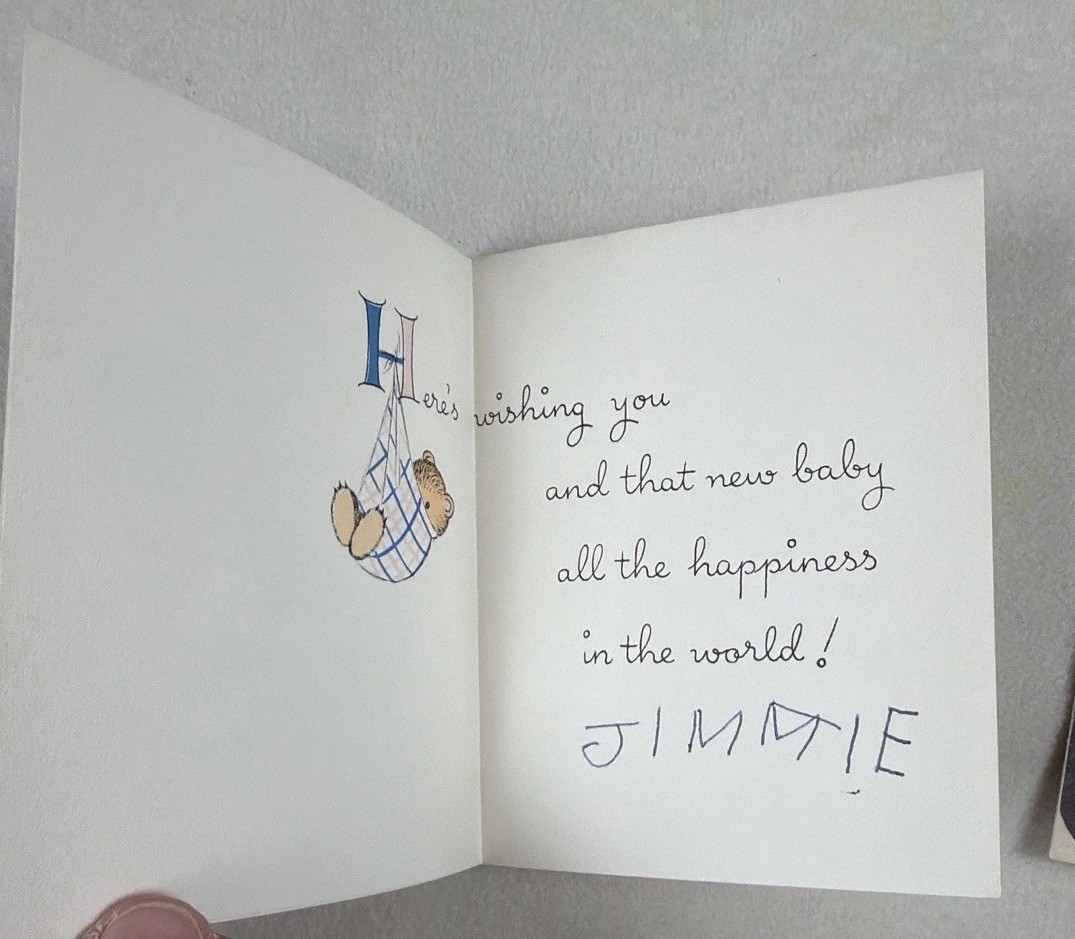 Here's wishing you
and that new baby
all the happiness
in the world!
JIMMIE